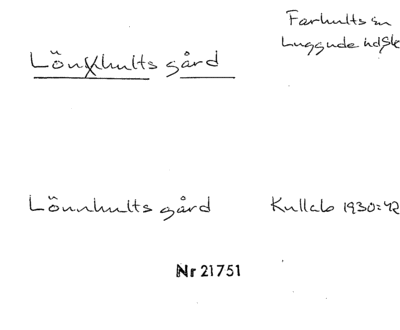 Farhults sn
Luggude hd Sk
Lönhults gård
Lönnhults gård Kullabo 1930:42
Nr 21751